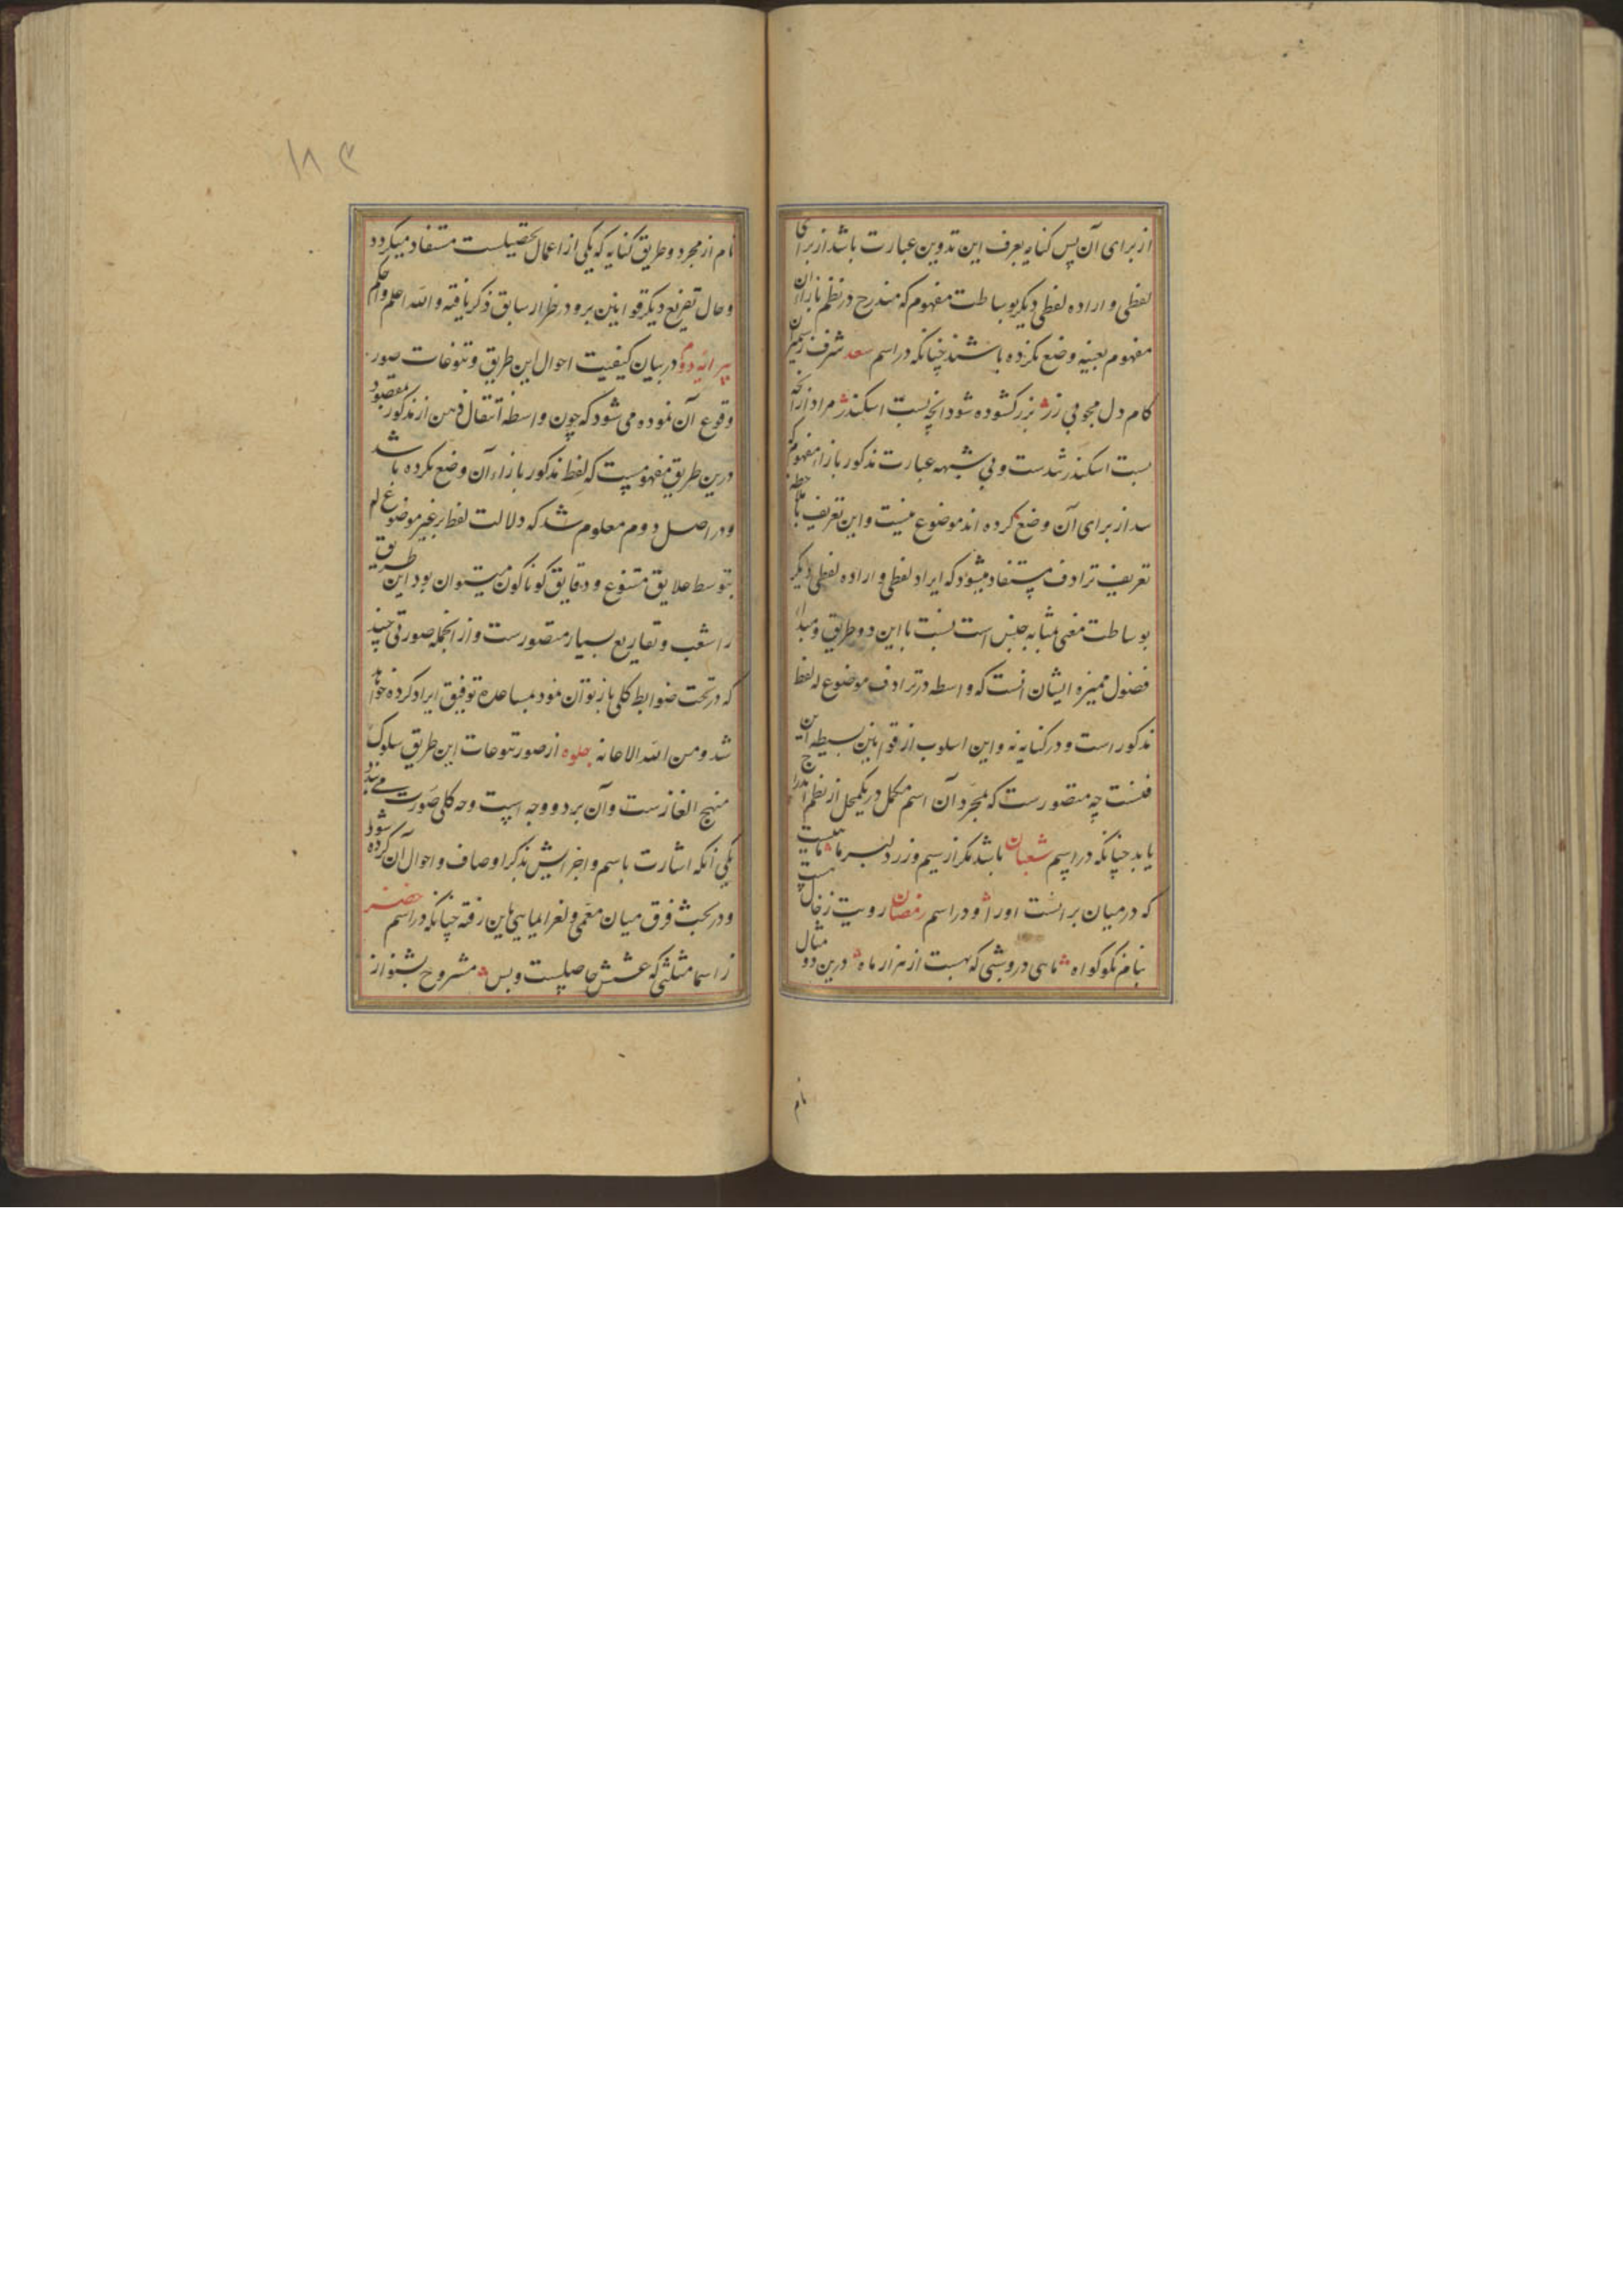 از برای آن پس کنایه بعرف این تدوین عبارت باشد از برای
لفظی و اراده لفظی دیگر بوساطت مفهوم که مندرج در نظم بازا آن
مفهوم بعینه وضع نکرده باشند چنانکه در اسم سعد شرف
کام دل مجوی زر بزر گشوده شود انچه بست اسکندر مراد از انچه
بست اسکندر شدست و بی شبهه عبارت مذکور بازاء مفهومی که
سد از برای آن وضع کرده اند موضوع نیست و این تعریف
تعریف ترادف مستفاد میشود که ایراد لفظی و اراده لفظی دیگر
بوساطت معنی بمثابه جنس است نسبت با این دو طریق و مبدا
فصول ممیزه ایشان انست که واسطه در ترادف موضوع له لفظ
مذکور است و در کنایه نه و این اسلوب از قوانین بسیطه این
فنست چه متصورست که بمجرد آن اسم مکمل در یکمحل از نظم اندراج
یابد چنانکه در اسم شعبان باشد مگر از سیم و زر دلبر ما
که در میان برانست او را و در اسم رمضان رویت زخال
بنام نکو گواه ماهی در وشبی که بهست از هزار ماه درین دو مثال
نام
۱۸۳
نام از مجرد و طریق کنایه که یکی از اعمال تحصیلست مستفاد میگردد
و حال تفریع دیگر قوانین برو در طراز سابق ذکر یافته والله اعلم واحکم
پیرایه دوم در بیان کیفیت احوال این طریق و تنوعات صور
وقوع آن نموده می شود که چون واسطه انتقال ذهن از مذکور بمقصود
درین طریق مفهومیست که لفظ مذکور بازاء آن وضع نکرده باشد
و در اصل دوم معلوم شد که دلالت لفظ بر غیر موضوع له
بتوسط علایق متنوع و دقایق کوناکون میتوان بود این طریق
را شعب و تفاریع بسیار متصورست و از انجمله صورتی چند
که در تحت ضوابط کلی باز توان نمود بمساعده توفیق ایراد کرده خواهد
شد ومن الله الاعانه جلوه از صور تنوعات این طریق سلوک
منهج الغازست و آن بر دو وجه است وجه کلی صورت می بندد
یکی انکه اشارت باسم و اجزایش بذکر اوصاف و احوال آن کرده شود
و در بحث فرق میان معمی و لغز ایمایی باین رفته چنانکه در اسم خضر
ز اسما مثلثی که عشش حاصلست و بس مشروح بشنو از